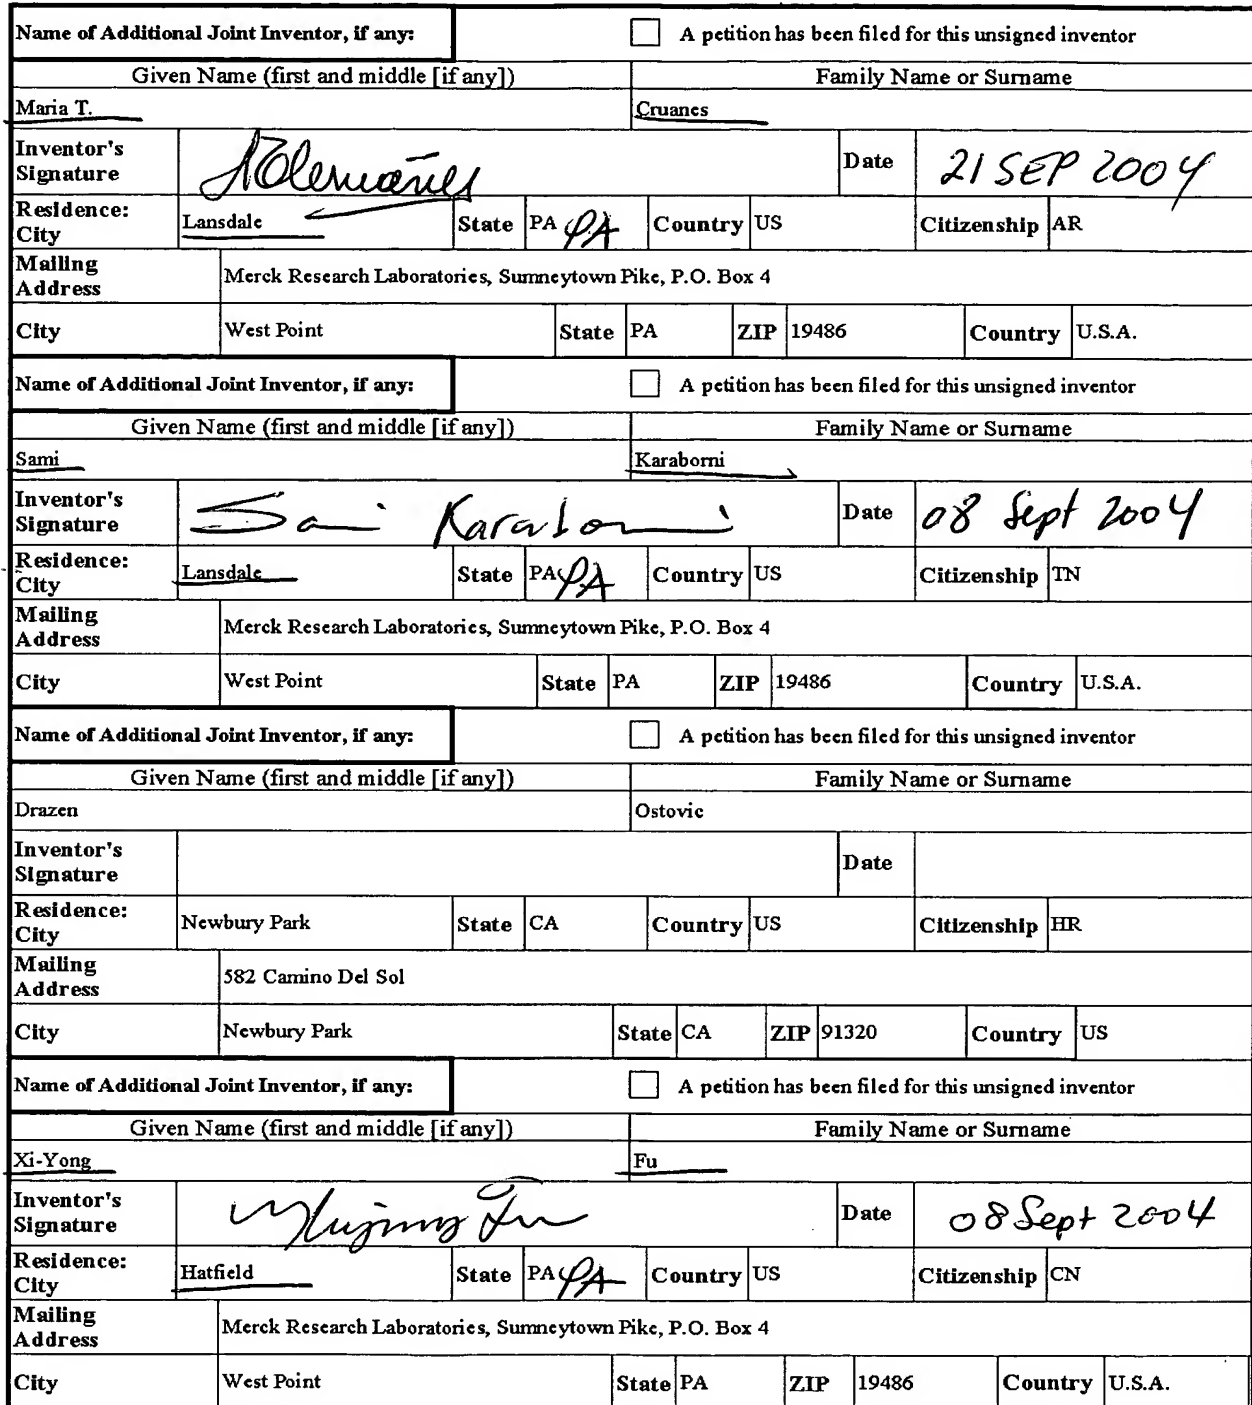 Name of Additional Joint Inventor, if any: A petition has been filed for this unsigned inventor
Given Name (first and middle [if any]) Family Name or Surname
Maria T. Cruanes
Inventor's Signature Date 21 SEP 2004
Residence: City Lansdale State PA PA Country US Citizenship AR
Mailing Address Merck Research Laboratories, Sumneytown Pike, P.O. Box 4
City West Point State PA ZIP 19486 Country U.S.A.
Name of Additional Joint Inventor, if any: A petition has been filed for this unsigned inventor
Given Name (first and middle [if any]) Family Name or Surname
Sami Karaborni
Inventor's Signature Sami Karaborni Date 08 Sept 2004
Residence: City Lansdale State PA PA Country US Citizenship TN
Mailing Address Merck Research Laboratories, Sumneytown Pike, P.O. Box 4
City West Point State PA ZIP 19486 Country U.S.A.
Name of Additional Joint Inventor, if any: A petition has been filed for this unsigned inventor
Given Name (first and middle [if any]) Family Name or Surname
Drazen Ostovic
Inventor's Signature Date
Residence: City Newbury Park State CA Country US Citizenship HR
Mailing Address 582 Camino Del Sol
City Newbury Park State CA ZIP 91320 Country US
Name of Additional Joint Inventor, if any: A petition has been filed for this unsigned inventor
Given Name (first and middle [if any]) Family Name or Surname
Xi-Yong Fu
Inventor's Signature Fu Date 08 Sept 2004
Residence: City Hatfield State PA PA Country US Citizenship CN
Mailing Address Merck Research Laboratories, Sumneytown Pike, P.O. Box 4
City West Point State PA ZIP 19486 Country U.S.A.